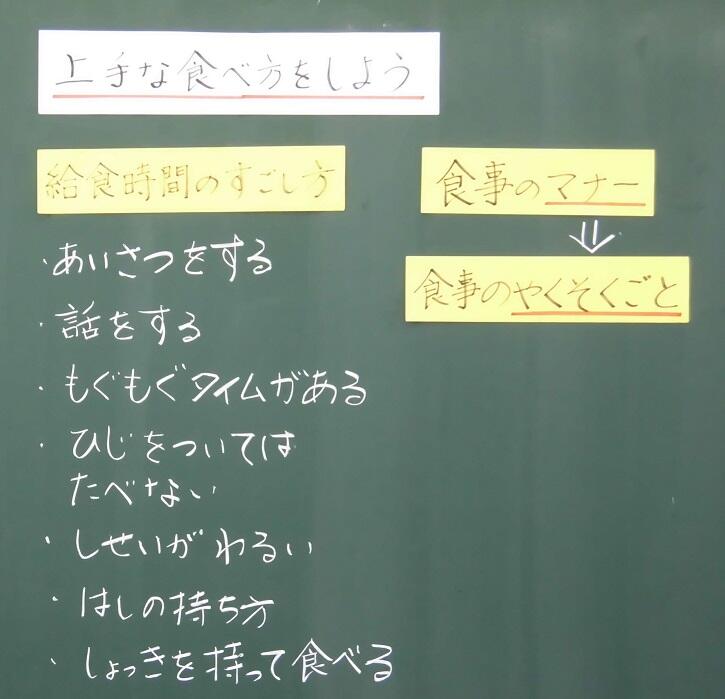 上手な食べ方をしよう
給食時間のすごし方
・あいさつをする
・話をする
・もぐもぐタイムがある
・ひじをついては
たべない
・しせいがわるい
・はしの持ち方
・しょっきを持って食べる
食事のマナー
⇓
食事のやくそくごと